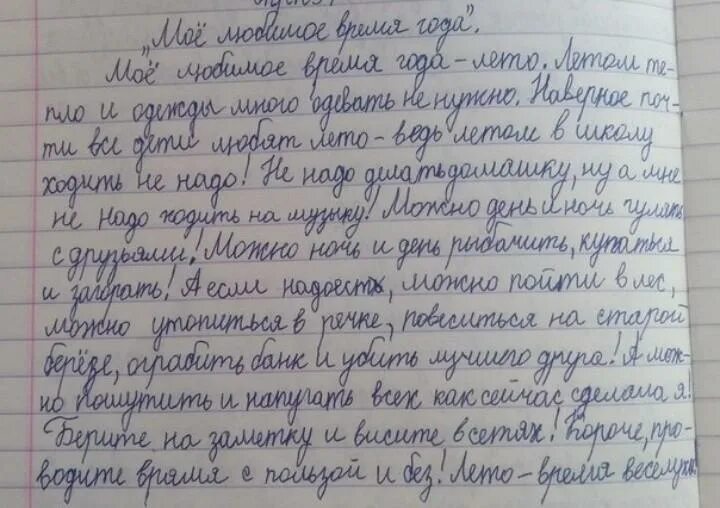 „Моё любимое время года".
Моё любимое время года - лето. Летом те-
пло и одежды много одевать не нужно. Наверное поч-
ти все дети любят лето - ведь летом в школу
ходить не надо! Не надо делать домашку, ну а мне
не надо ходить на музыку! Можно день и ночь гулять
с друзьями! Можно ночь и день рыбачить, купаться
и загорать! А если надоест, можно пойти в лес,
можно утопиться в речке, повеситься на старой
берёзе, ограбить банк и убить лучшего друга! А мож-
но пошутить и напугать всех как сейчас сделала я!
Берите на заметку и висите в сетях! Короче, про-
водите время с пользой и без! Лето - время веселухи!